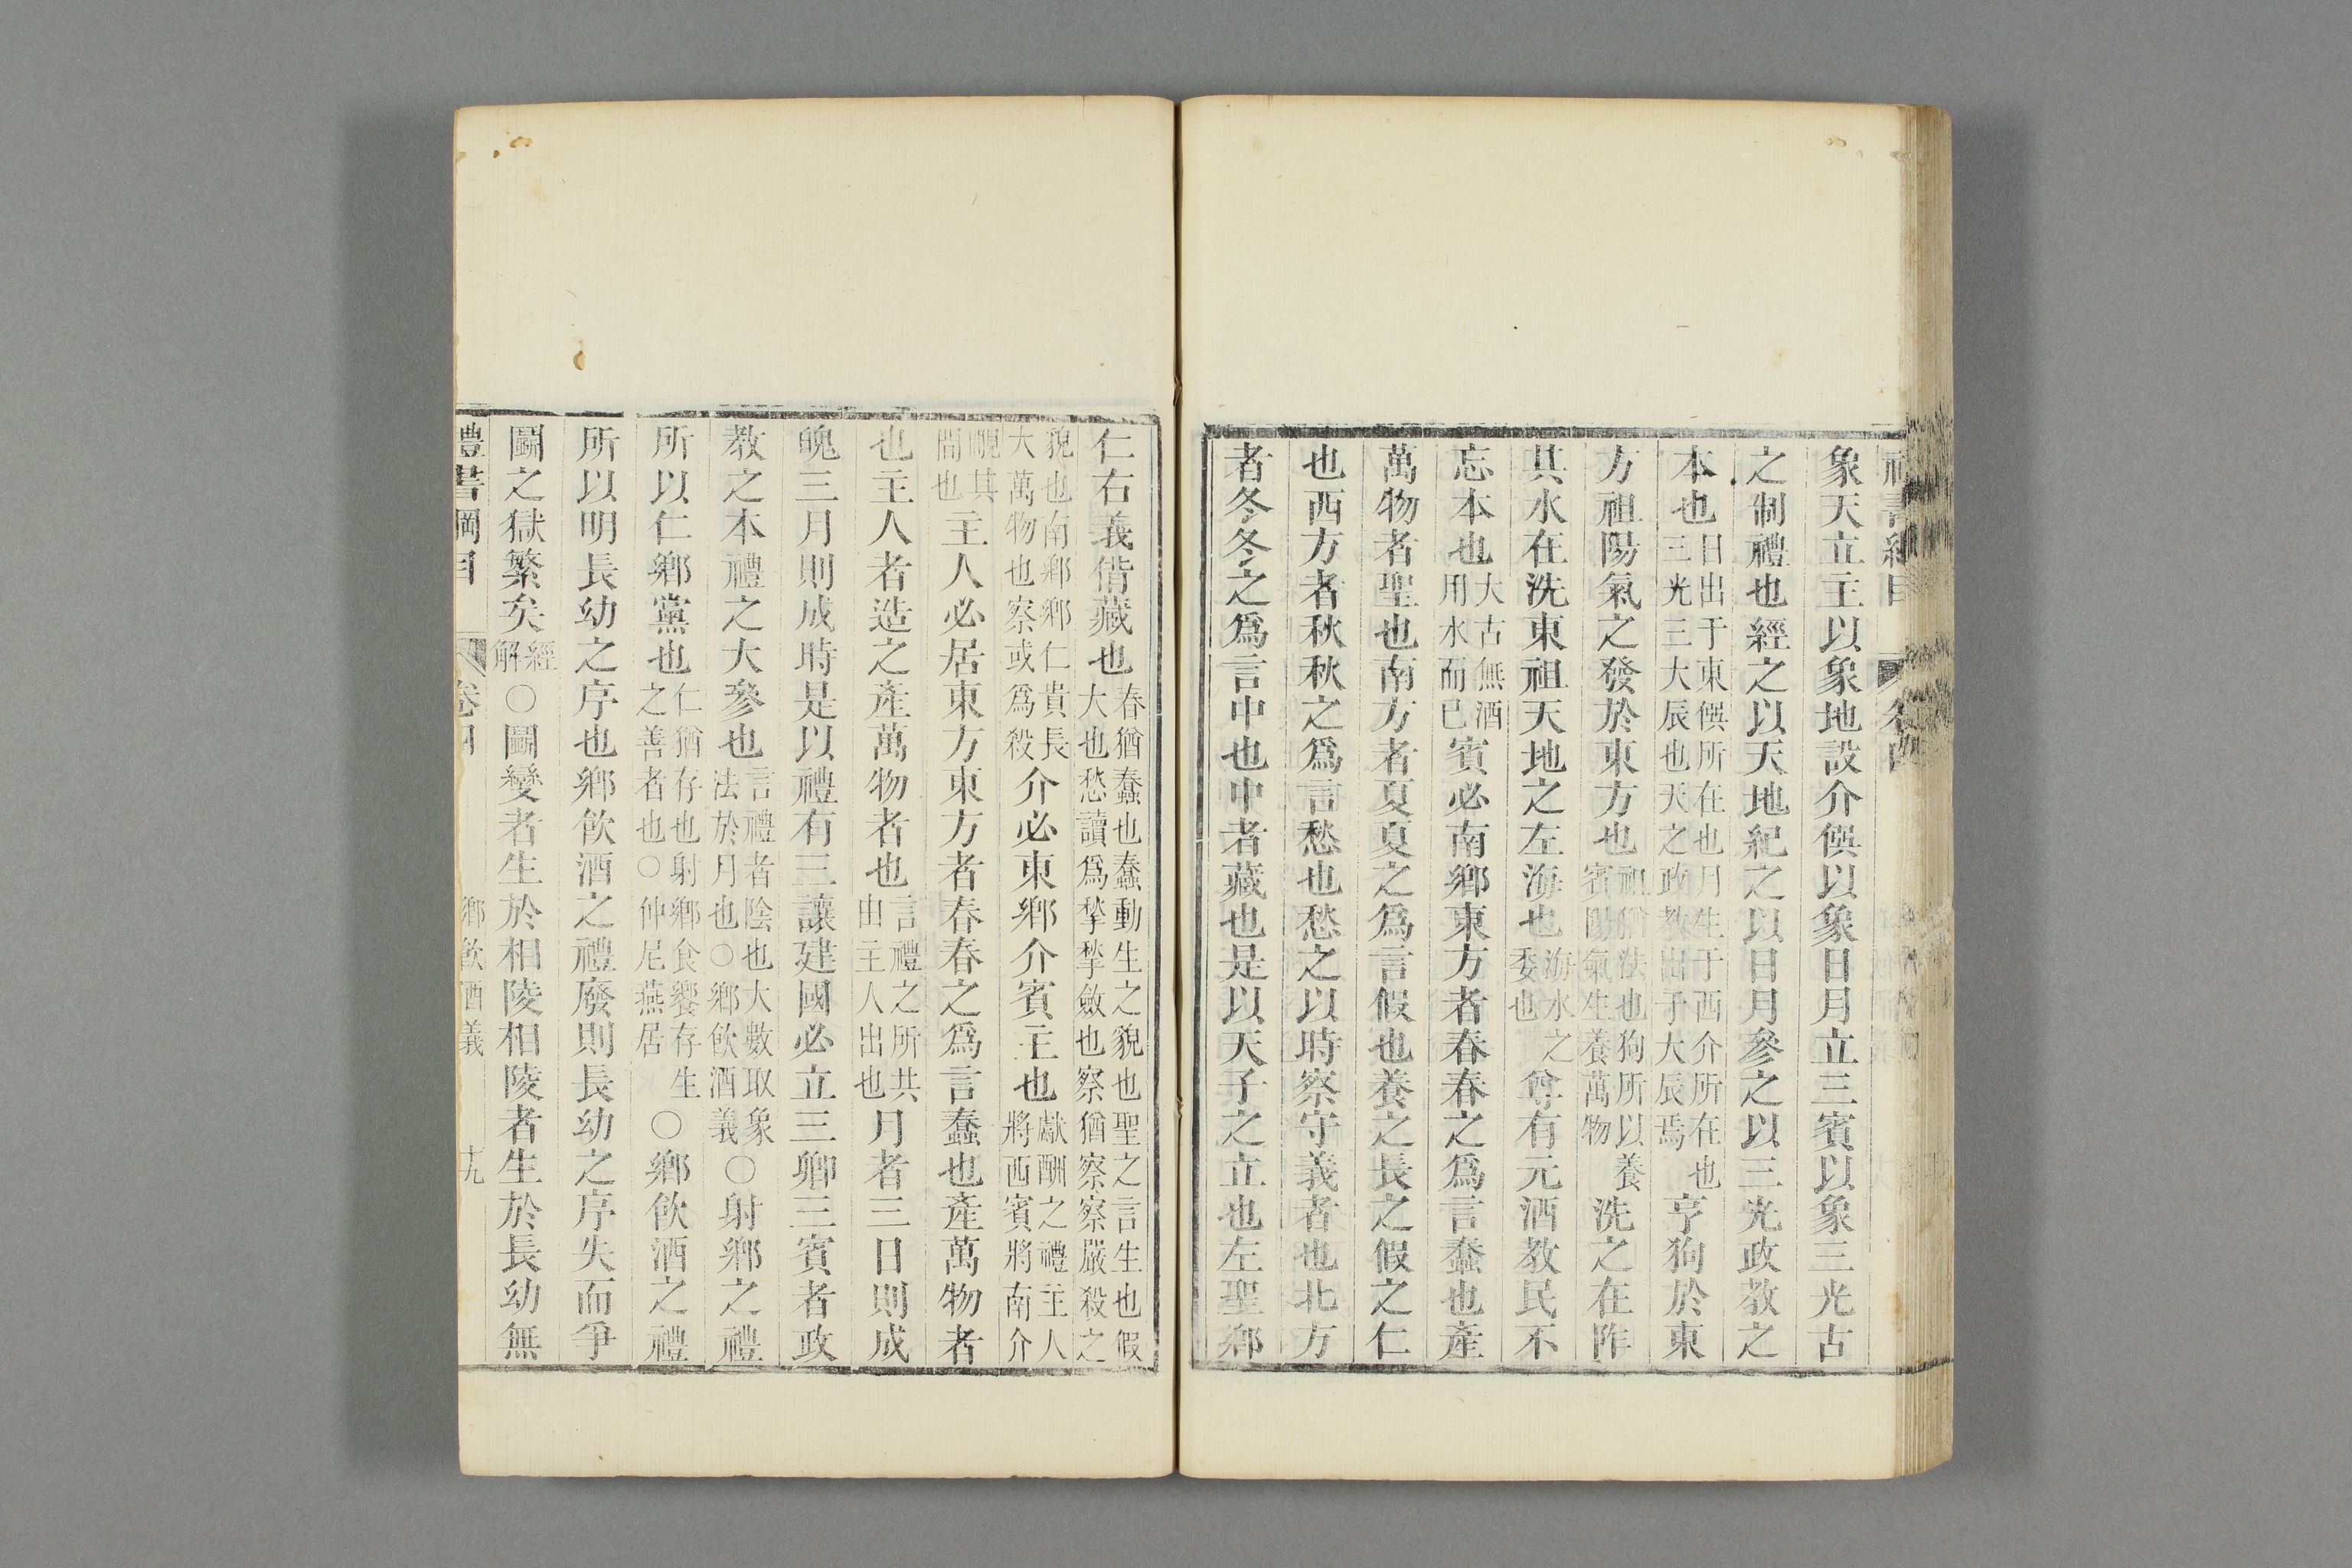 象天立主以象地設介僎以象日月立三賓以象三光古
之制禮也經之以天地紀之以日月參之以三光政教之
本也日出于東僎所在也月生于西介所在也三光三大辰也天之政教出于大辰焉亨狗於東
方祖陽氣之發於東方也祖猶法也狗所以養賓陽氣生養萬物洗之在阼
其水在洗東祖天地之左海也海水之委也尊有元酒教民不
忘本也大古無酒用水而已賓必南鄉東方者春春之爲言蠢也產
萬物者聖也南方者夏夏之爲言假也養之長之假之仁
也西方者秋秋之爲言愁也愁之以時察守義者也北方
者冬冬之爲言中也中者藏也是以天子之立也左聖鄉
仁右義偝藏也春猶蠢也蠢動生之貌也聖之言生也假大也愁讀爲揫揫斂也察猶察察嚴殺之
貌也南鄉鄉仁貴長大萬物也察或爲殺介必東鄉介賓主也獻酬之禮主人將西賓將南介
覸其間也主人必居東方東方者春春之爲言蠢也產萬物者
也主人者造之產萬物者也言禮之所共由主人出也月者三日則成
魄三月則成時是以禮有三讓建國必立三卿三賓者政
教之本禮之大參也言禮者陰也大數取象法於月也○鄉飲酒義○射鄉之禮
所以仁鄉黨也仁猶存也射鄉食饗存生之善者也○仲尼燕居○鄉飲酒之禮
所以明長幼之序也鄉飲酒之禮廢則長幼之序失而爭
鬭之獄繁矣經解○鬭變者生於相陵相陵者生於長幼無
禮書綱目 卷四 鄉飲酒義 十九